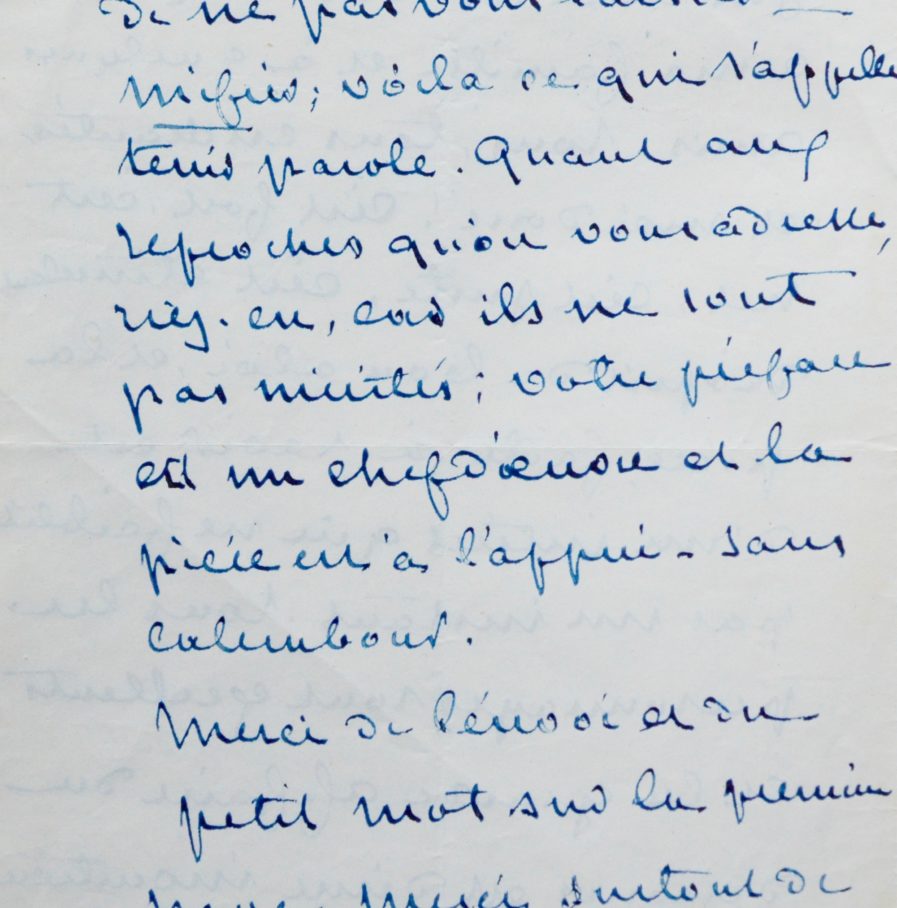 de ne pas vous
voilà ce qui s'appelle
tenir parole. Quant aux
reproches qu'on vous adresse,
en, cas ils ne sont
pas mérités ; votre préface
est un chef d'œuvre et la
pièce est à l'appui - sans
calembour.
Merci de l'envoi et du
petit mot sur la première
merci surtout de